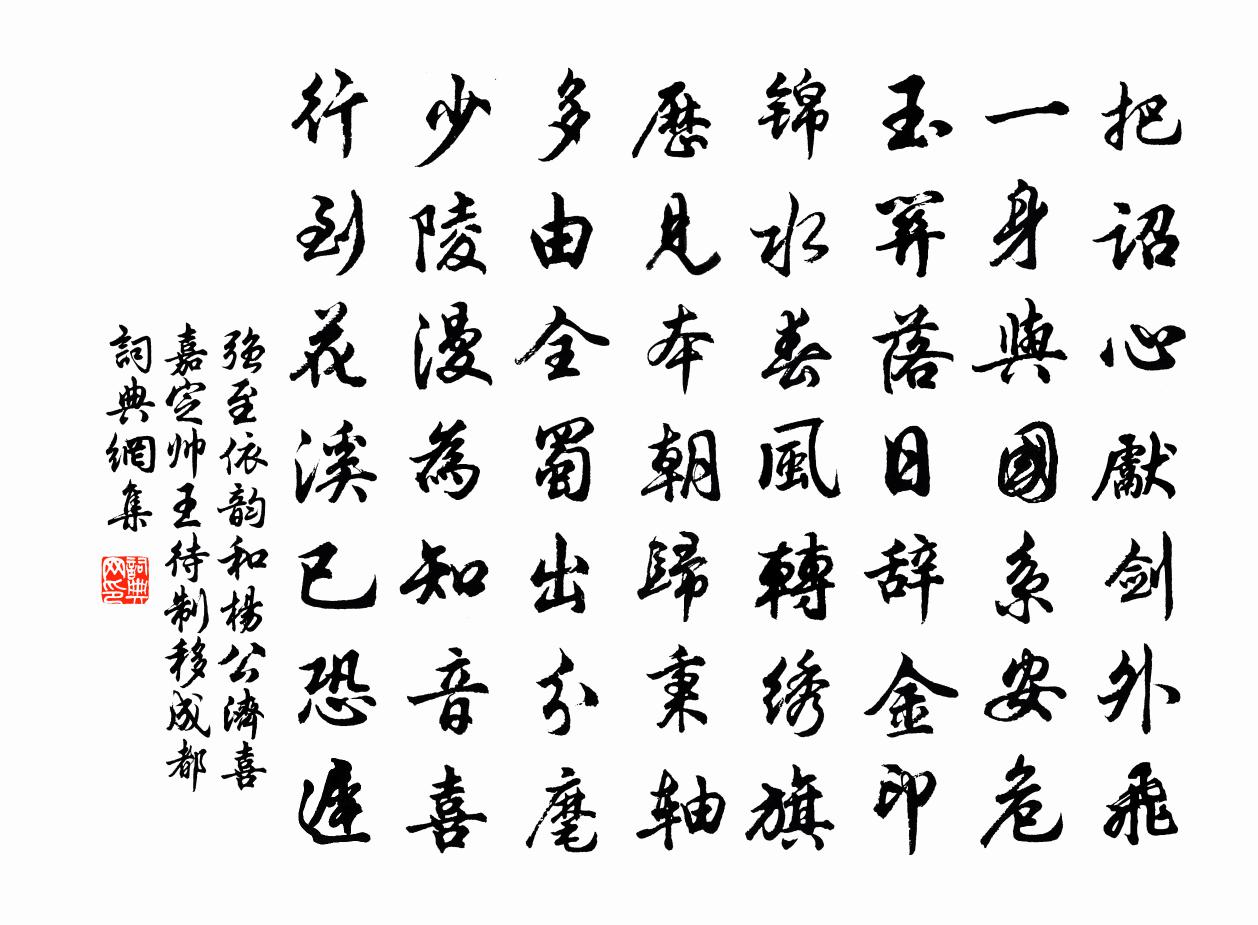 把詔心獻剑外飛
一身與國系安危
玉關落日辞金印
锦水春風轉绣旗
歷見本朝歸秉轴
多由全蜀出分麾
少陵漫為知音喜
行到花溪已恐遲
强至依韵和楊公濟喜
嘉定帅王待制移成都
詞典網集
詞典网印